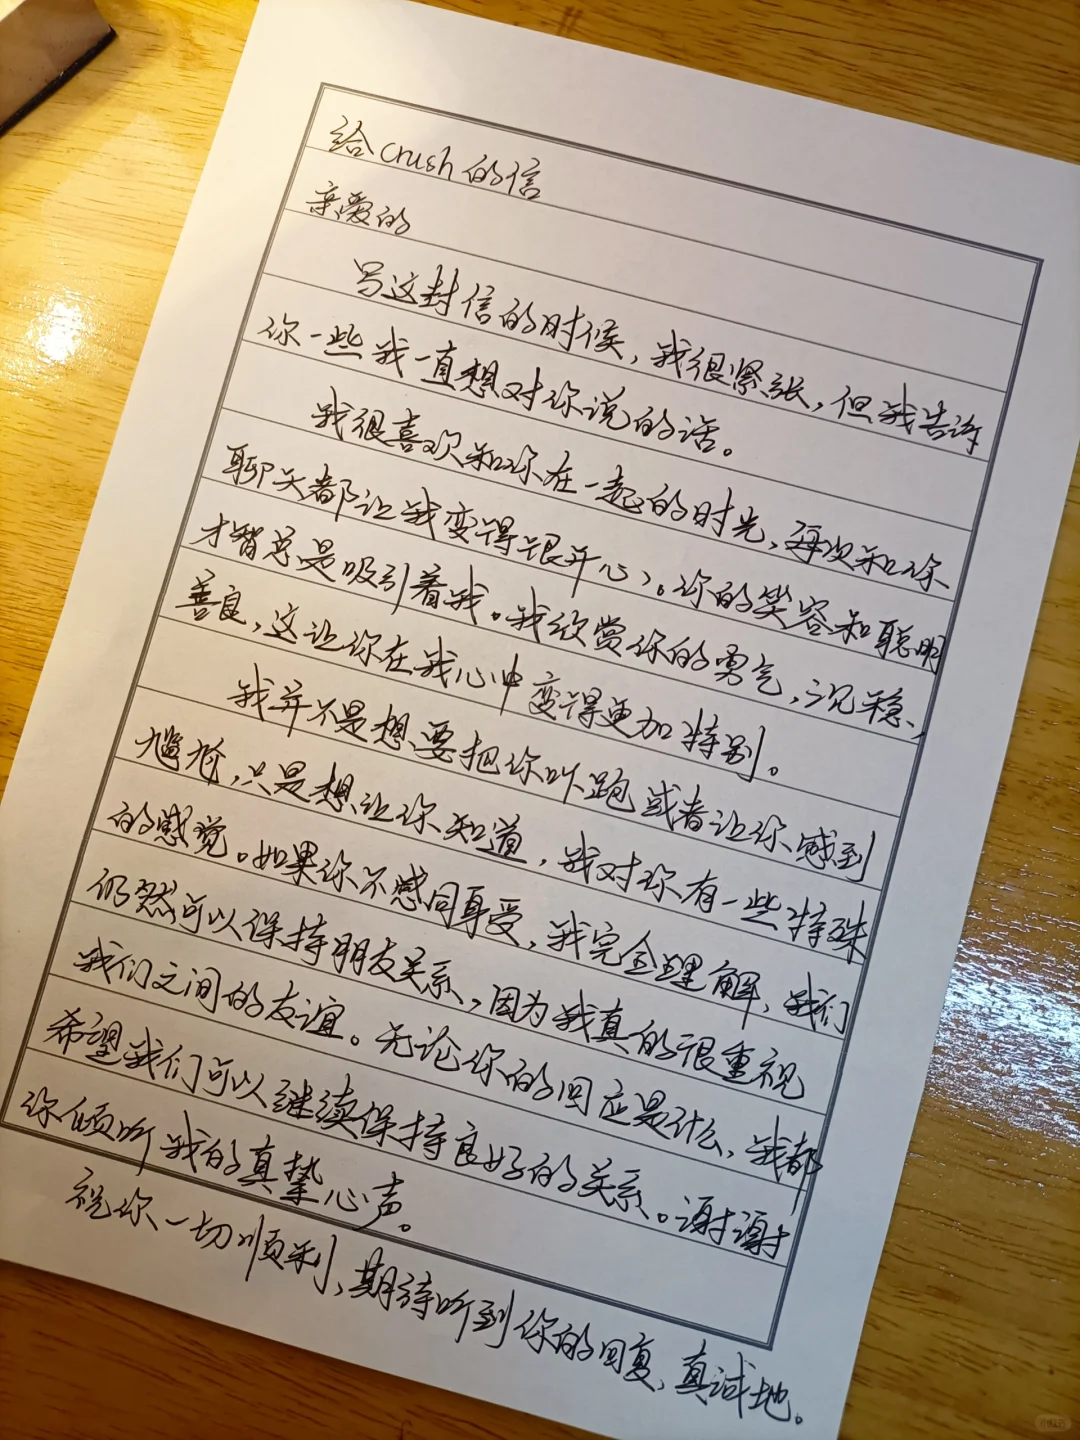 给crush的信
亲爱的
写这封信的时候，我很紧张，但我告诉
你一些我一直想对你说的话。
我很喜欢和你在一起的时光，每次和你
聊天都让我变得很开心。你的笑容和聪明
才智总是吸引着我。我欣赏你的勇气，沉稳、
善良，这让你在我心中变得更加特别。
我并不是想要把你叫跑或者让你感到
尴尬，只是想让你知道，我对你有一些特殊
的感觉。如果你不感同身受，我完全理解，我们
仍然可以保持朋友关系，因为我真的很重视
我们之间的友谊。无论你的回应是什么，我都
希望我们可以继续保持良好的关系。谢谢
你倾听我的真挚心声。
祝你一切顺利，期待听到你的回复，真诚地。
小红书